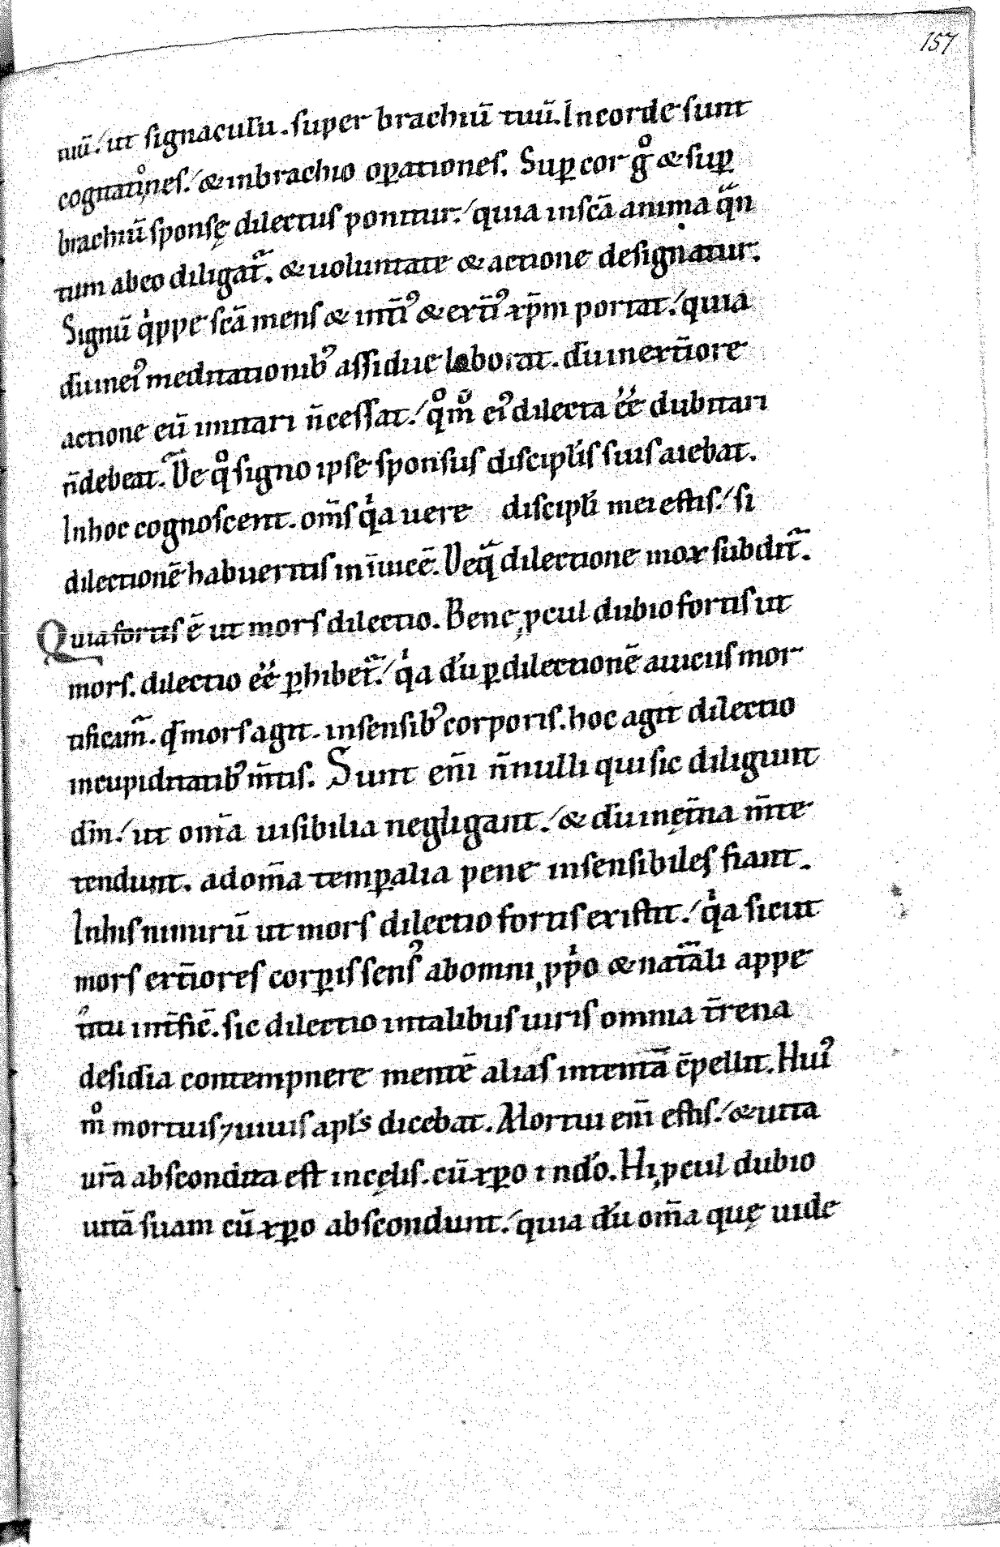 157
tuū. ut signaculū. super brachiū tuū. In corde sunt
cogitatiͦnes. & in brachio oꝑationes. Suꝑ cor gͦ & suꝑ
brachiū sponsę dilectus ponitur. quia in scā anima qͣn
tum ab eo diligat᷑. & uoluntate & actione designatur.
Signū qͥppe scā mens & int̄iꝰ & ext̄iꝰ xp̄m portat. quia
dū in eiꝰ meditationibꝰ assidue laborat. dū in ext̄iore
actione eū imitari n̄ cessat. qͦm̄ eiꝰ dilecta eē dubitari
n̄ debeat. De qͦ signo ipse sponsus discipl̄is suis aiebat.
In hoc cognoscent om̄s qͥa uere discipl̄i mei estis. si
dilectionē habueritis in īuicē. De qͣ dilectione mox subdit᷑.
Quia fortis ē ut mors dilectio. Bene ꝓcul dubio fortis ut
mors. dilectio eē ꝑhibet᷑. qͥa dū ꝑ dilectionē a uicus mor
tificam᷑. qđ mors agit in sensibꝰ corporis. hoc agit dilectio
in cupiditatibꝰ m̄tis. Sunt em̄ n̄nulli qui sic diligunt
dm̄. ut om̄a uisibilia negligant. & dū in ęt̄na m̄te
tendunt. ad om̄a temꝑalia pene insensibiles fiant.
In his nimirū ut mors dilectio fortis existit. qͥa sicut
mors ext̄iores corꝑis sensꝰ ab omni ꝓpͥo & nat̄ali appe
titu int̄ficͥ. sic dilectio in talibus uiris omnia t̄rena
desidia contempnere mentē alias intentā cͦpellit. Huiꝰ
mͦ mortuis ⁊ uiuis apl̄s dicebat. Mortui em̄ estis. & uita
ur̄a abscondita est in cęlis. cū xp̄o in do. Hi ꝓcul dubio
uitā suam cū xp̄o abscondunt. quia dū om̄a quę uide